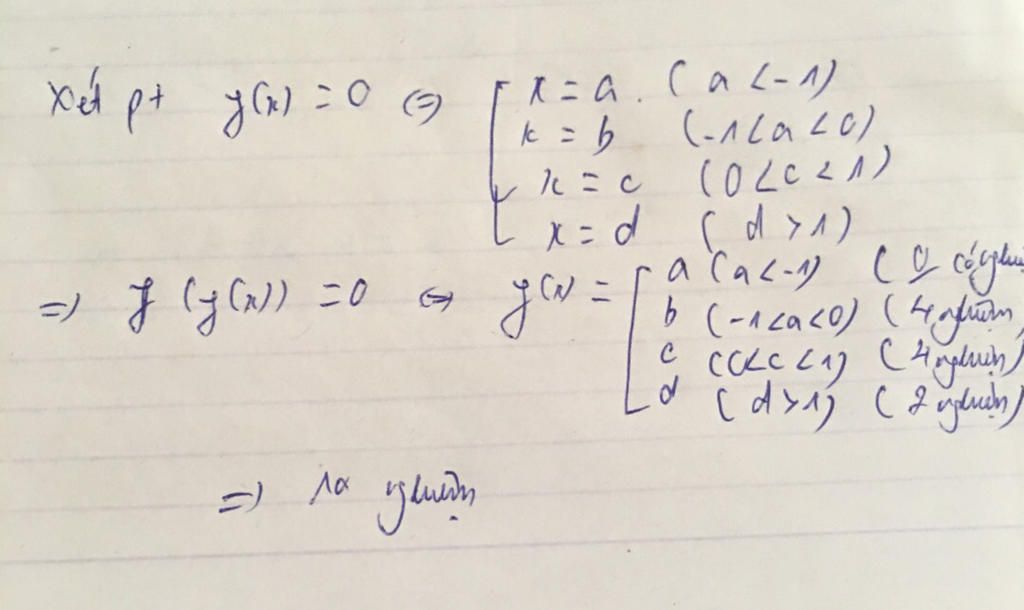 Xét pt y(x) = 0 ⇔ [ x = a. (a < -1)
x = b (-1 < a < 0)
x = c (0 < c < 1)
x = d (d > 1)
=> y(y(x)) = 0 ⇔ y(x) = [ a (a < -1) (0 có nghiệ
b (-1 < a < 0) (4 nghiệm)
c (0 < c < 1) (4 nghiệm)
d (d > 1) (2 nghiệm)
=> 10 nghiệm